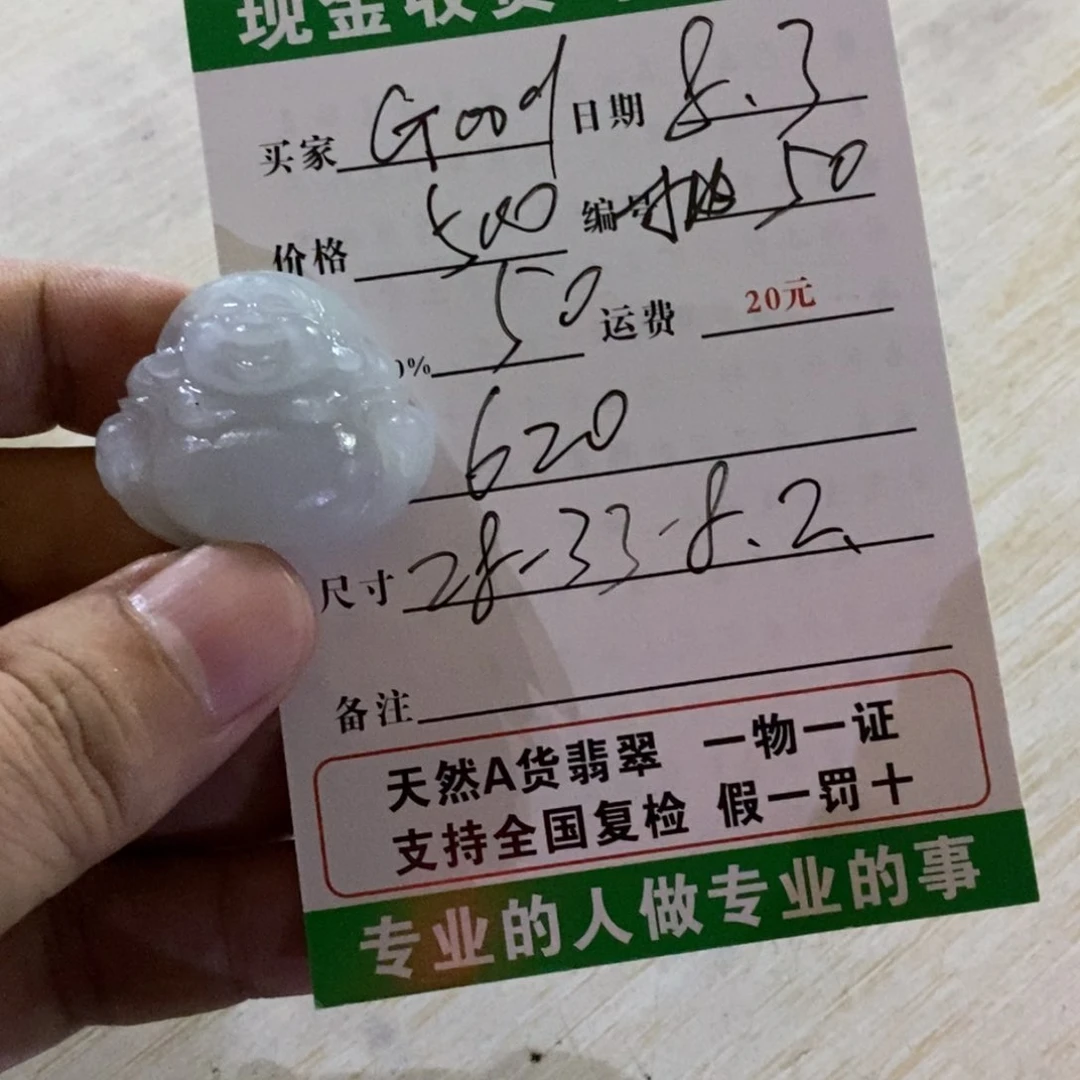 现金收货
买家 Good 日期 8.3
价格 500 编号 50
0% 50 运费 20元
620
尺寸 28-33-8.2
备注
天然A货翡翠 一物一证
支持全国复检 假一罚十
专业的人做专业的事